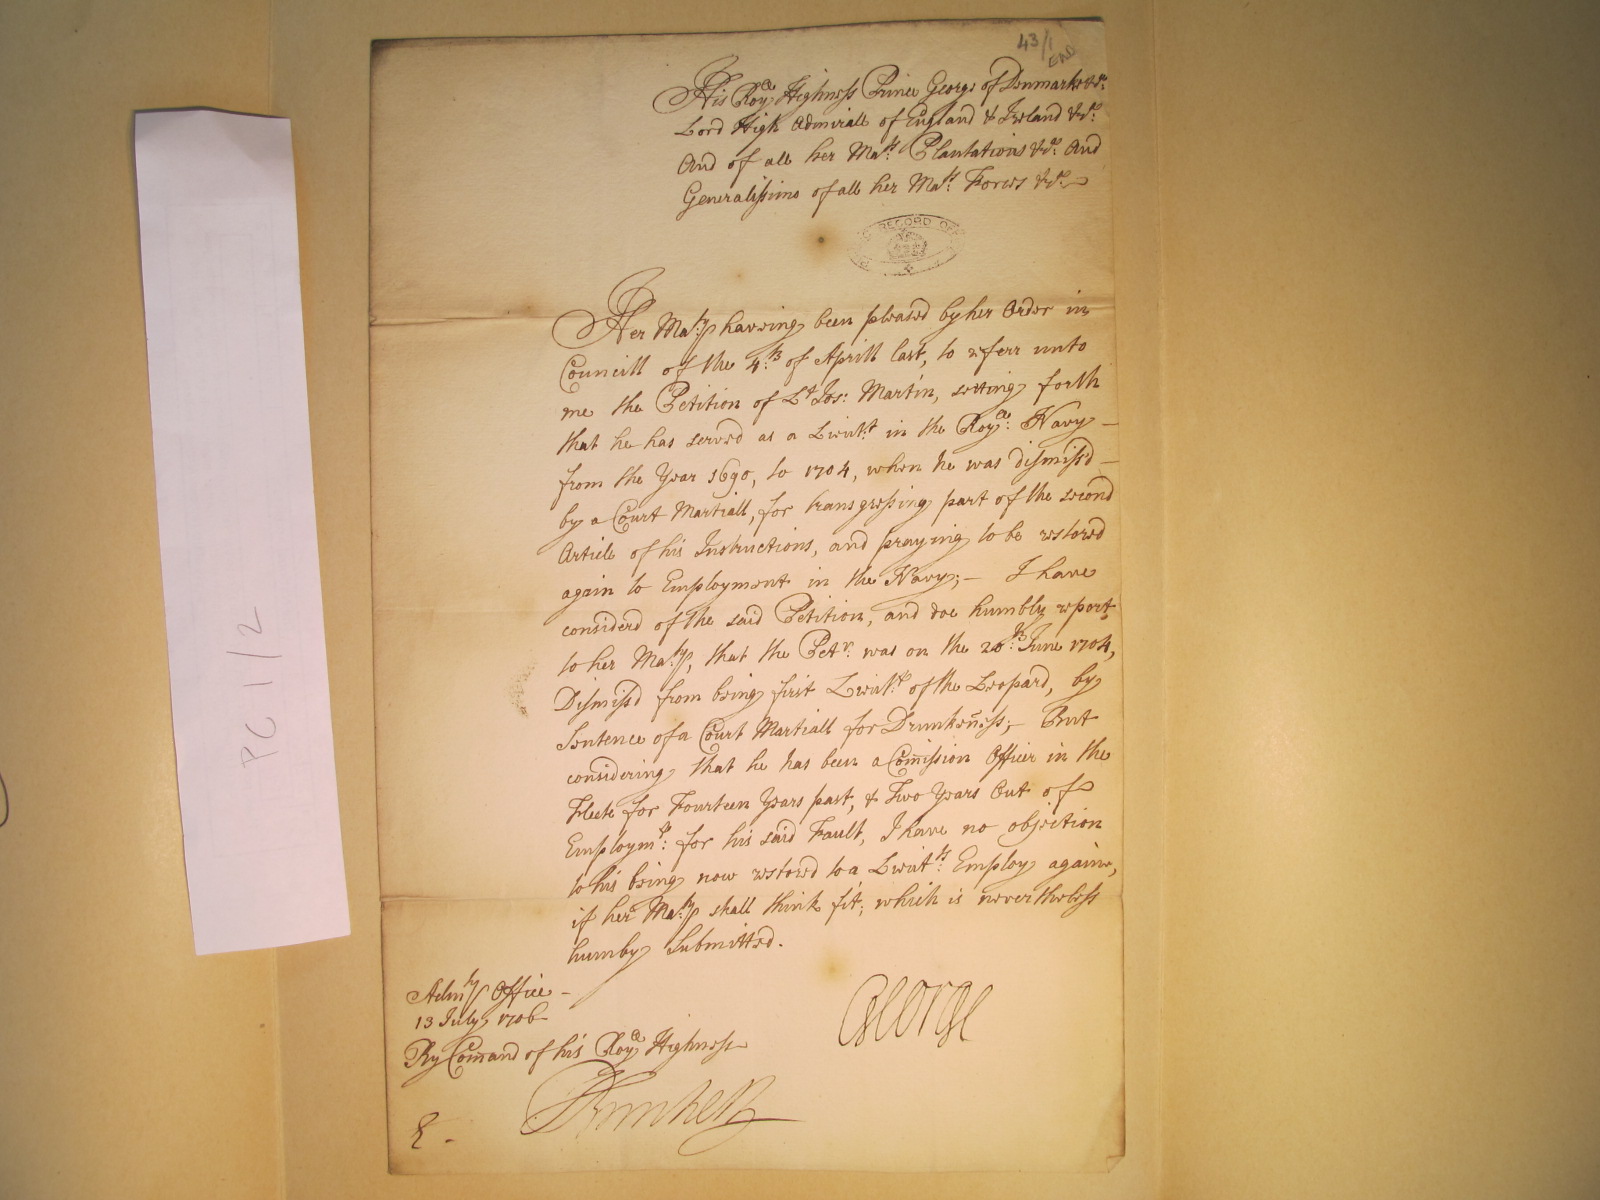 43/1
END
His Roy.ll Highness Prince George of Denmark &c.
Lord High Admirall of England & Ireland &c.
And of all her Ma.ts Plantations &c. And
Generalissimo of all her Ma.ts Forces &c.
RECORD OFF
Her Ma.ty having been pleased by her Order in
Councill of the 4.th of Aprill last, to referr unto
me the Petition of L.t Jos: Martin, setting forth
that he has served as a Lieut.t in the Roy.ll Navy –
from the Year 1690, to 1704, when he was dismiss'd –
by a Court Martiall, for transgressing part of the second
Article of his Instructions, and praying to be restored
again to Employment in the Navy; – I have
considerd of the said Petition, and doe humbly report
to her Ma.ty, that the Pet.r was on the 20.th June 1704,
Dismiss'd from being first Lieut.t of the Leopard, by
Sentence of a Court Martiall for Drunkeness; – But
considering that he has been a Comission Officer in the
Fleete for Fourteen Years past, & Two Years Out of
Employm.t: for his said Fault, I have no objection
to his being now restored to a Lieut.ts Employ againe,
if her Ma.ty shall think fit; which is nevertheless
humby Submitted.
Adm.ty Office –
13 July 1706
George
By Comand of his Roy.ll Highness
E –
PC 1/2